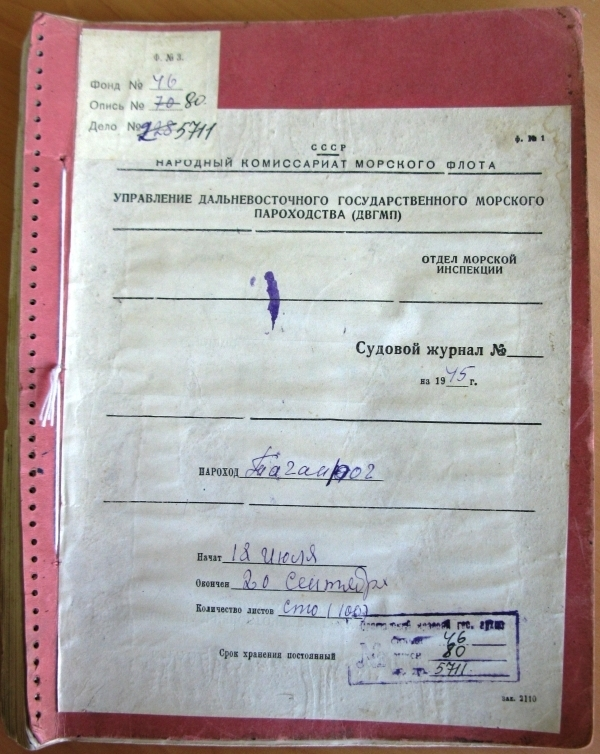 Ф. № 3.
Фонд № 46
Опись № 70 80
Дело № 278 5711
ф. № 1
СССР
НАРОДНЫЙ КОМИССАРИАТ МОРСКОГО ФЛОТА
УПРАВЛЕНИЕ ДАЛЬНЕВОСТОЧНОГО ГОСУДАРСТВЕННОГО МОРСКОГО
ПАРОХОДСТВА (ДВГМП)
ОТДЕЛ МОРСКОЙ
ИНСПЕКЦИИ
Судовой журнал №
на 1945 г.
ПАРОХОД Таганрог
Начат 18 июля
Окончен 20 сентября
Количество листов сто (100)
Срок хранения постоянный
46
80
5711
Зак. 2110